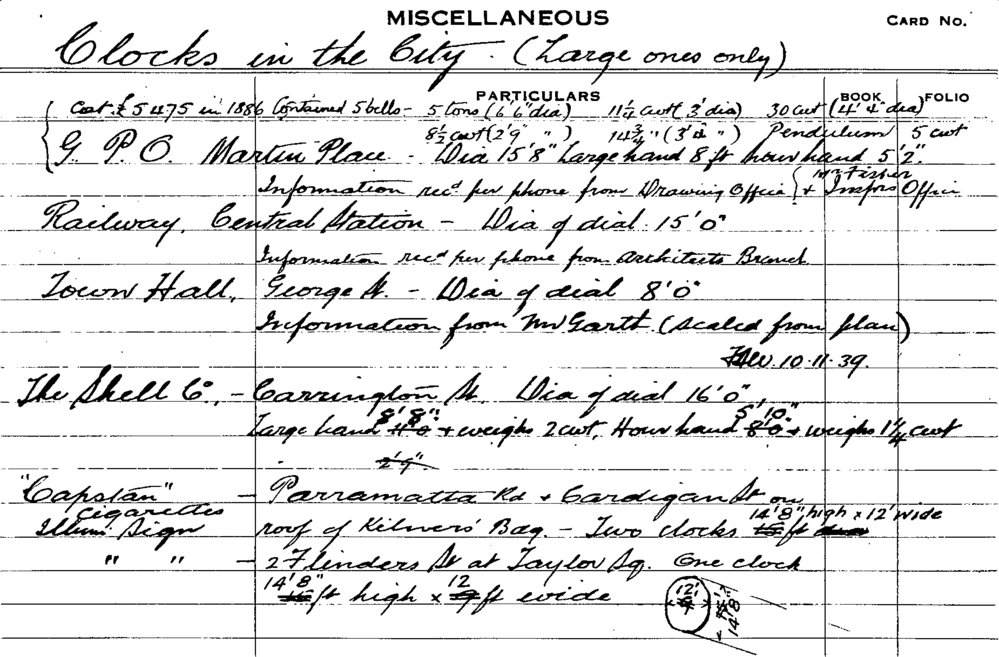 MISCELLANEOUS
CARD No.
Clocks in the City. (Large ones only)
PARTICULARS BOOK FOLIO
Cost £5475 in 1886 Contained 5 bells - 5 tons (6'6" dia) 11¼ cwt (3' dia) 30 cwt (4'4" dia)
8½ cwt (2'9" ") 14¾ " (3'4" ") Pendulum 5 cwt
G. P. O. Martin Place - Dia 15'8" Large hand 8 ft hour hand 5'2".
Information recd per phone from Drawing Office { Mr Fisher
+ Inspors Office
Railway, Central Station - Dia of dial 15'0"
Information recd per phone from Architects Branch
Town Hall, George St. - Dia of dial 8'0"
Information from Mr Garth. (Scaled from plan)
10.11.39.
The Shell Co, - Carrington St. Dia of dial 16'0"
8'8" 5'10"
Large hand + weighs 2 cwt, Hour hand 8'0" + weighs 1¼ cwt
2'9"
"Capstan" - Parramatta Rd + Cardigan St on
cigarettes 14'8" high x 12' wide
Illum. Sign roof of Kilners' Bdg. - Two clocks ft dia
" " - 2 Flinders St at Taylor Sq. One clock
14'8" 12
ft high x 9 ft wide
12'
14'8"